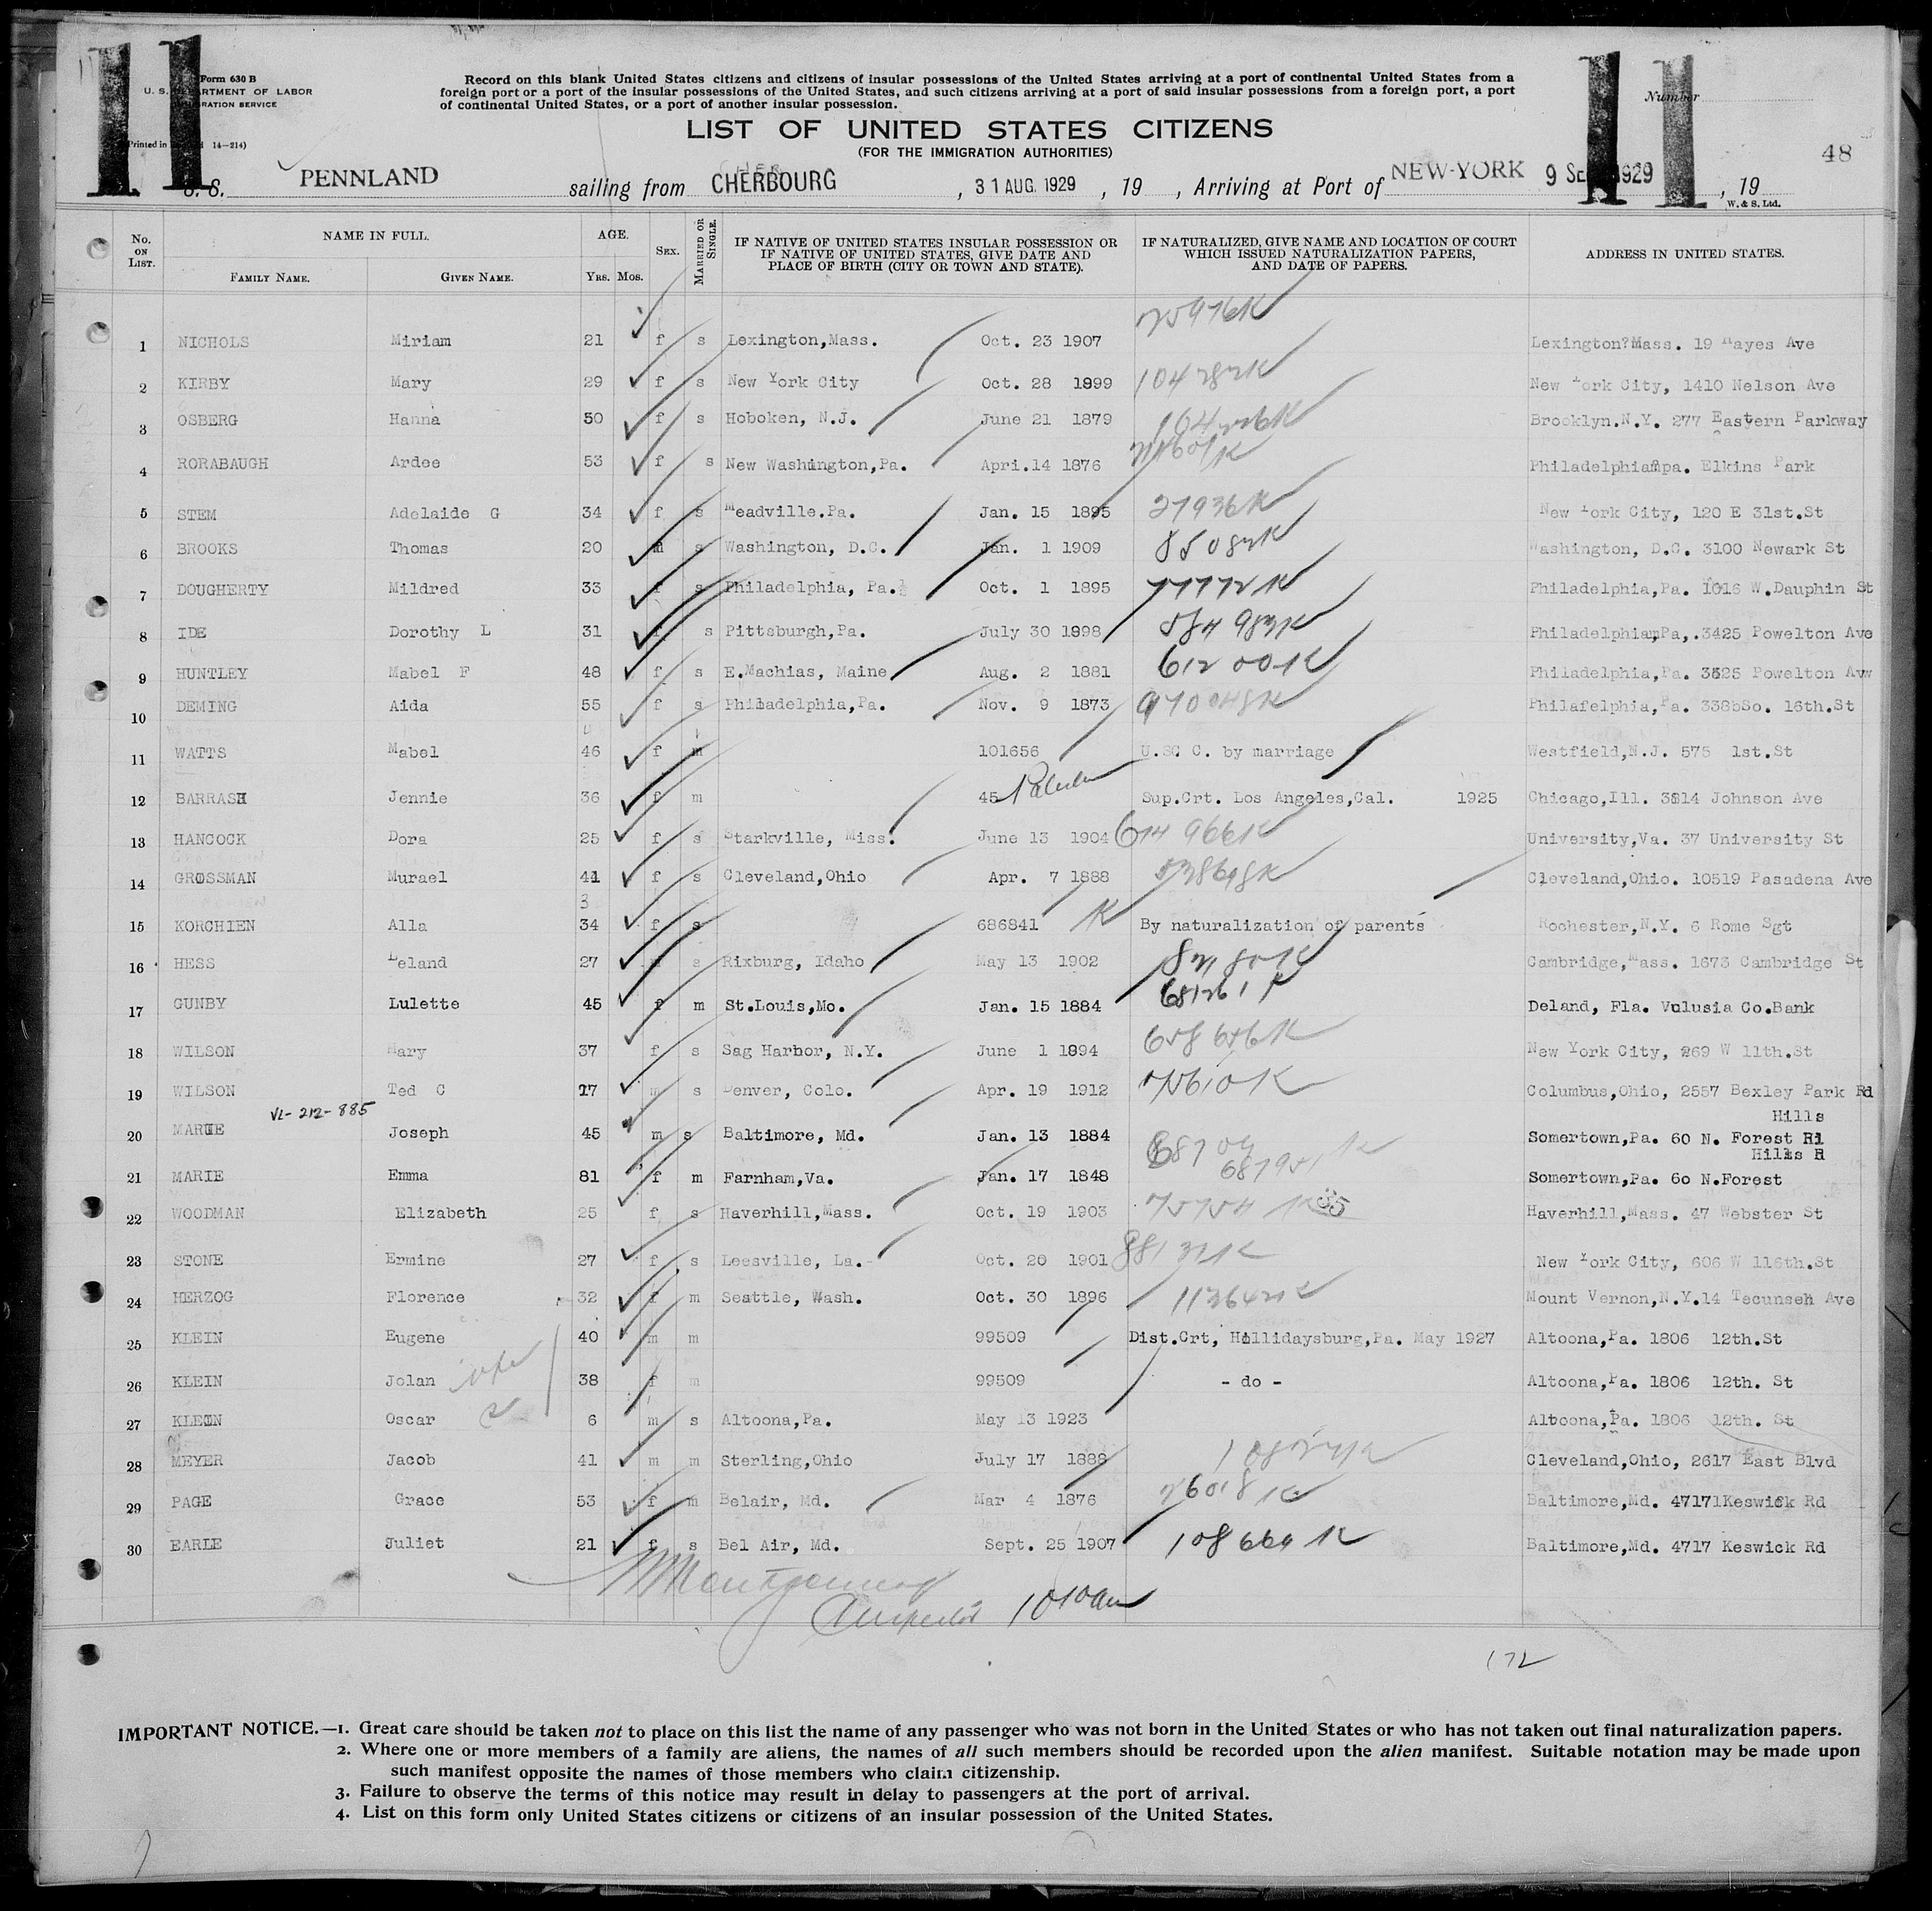 11 11
Form 630 B
U. S. DEPARTMENT OF LABOR
IMMIGRATION SERVICE
Printed in 14—214)
Record on this blank United States citizens and citizens of insular possessions of the United States arriving at a port of continental United States from a
foreign port or a port of the insular possessions of the United States, and such citizens arriving at a port of said insular possessions from a foreign port, a port
of continental United States, or a port of another insular possession.
Number
48
LIST OF UNITED STATES CITIZENS
(FOR THE IMMIGRATION AUTHORITIES)
S. S. PENNLAND sailing from CHERBOURG , 31 AUG. 1929 , 19 , Arriving at Port of NEW-YORK 9 SE 1929 , 19
W. & S. Ltd.
No. ON LIST. NAME IN FULL. FAMILY NAME. GIVEN NAME. AGE. YRS. MOS. SEX. MARRIED OR SINGLE. IF NATIVE OF UNITED STATES INSULAR POSSESSION OR IF NATIVE OF UNITED STATES, GIVE DATE AND PLACE OF BIRTH (CITY OR TOWN AND STATE). IF NATURALIZED, GIVE NAME AND LOCATION OF COURT WHICH ISSUED NATURALIZATION PAPERS, AND DATE OF PAPERS. ADDRESS IN UNITED STATES.
1 NICHOLS Miriam 21 f s Lexington,Mass. Oct. 23 1907 Lexington?Mass. 19 Hayes Ave
2 KIRBY Mary 29 f s New York City Oct. 28 1899 New York City, 1410 Nelson Ave
3 OSBERG Hanna 50 f s Hoboken, N.J. June 21 1879 Brooklyn.N.Y. 277 Eastern Parkway
4 RORABAUGH Ardee 53 f s New Washington,Pa. Apri.14 1876 Elkins Park
5 STEM Adelaide G 34 f s Meadville.Pa. Jan. 15 1895 27936K New York City, 120 E 31st.St
6 BROOKS Thomas 20 m s Washington, D.C. Jan. 1 1909 Washington, D.C. 3100 Newark St
7 DOUGHERTY Mildred 33 f s Philadelphia, Pa. Oct. 1 1895 77772K Philadelphia,Pa. 1016 W.Dauphin St
8 IDE Dorothy L 31 f s Pittsburgh,Pa. July 30 1898 3425 Powelton Ave
9 HUNTLEY Mabel F 48 f s E.Machias, Maine Aug. 2 1881 Philadelphia,Pa. Powelton Avw
10 DEMING Aida 55 f s Philadelphia,Pa. Nov. 9 1873 Philafelphia,Pa. So. 16th.St
11 WATTS Mabel 46 f m 101656 C. by marriage Westfield,N.J. 575 1st.St
12 BARRASH Jennie 36 f m 45 Sup.Crt. Los Angeles,Cal. 1925 Chicago,Ill. Johnson Ave
13 HANCOCK Dora 25 f s Starkville, Miss. June 13 1904 University,Va. 37 University St
14 GROSSMAN Murael 41 f s Cleveland,Ohio Apr. 7 1888 Cleveland,Ohio. 10519 Pasadena Ave
15 KORCHIEN Alla 34 f s 686841 K By naturalization of parents Rochester,N.Y. 6 Rome Sgt
16 HESS Leland 27 s Rixburg, Idaho May 13 1902 Cambridge,Mass. 1673 Cambridge St
17 GUNBY Lulette 45 f m St.Louis,Mo. Jan. 15 1884 Deland, Fla. Volusia Co.Bank
18 WILSON Mary 37 f s Sag Harbor, N.Y. June 1 1894 New York City, 269 W 11th.St
19 WILSON Ted C 17 m s Denver, Colo. Apr. 19 1912 Columbus,Ohio, 2557 Bexley Park Rd
VL-212-885
Hills
20 MARIE Joseph 45 m s Baltimore, Md. Jan. 13 1884 Somertown,Pa. 60 N. Forest
Hills R
21 MARIE Emma 81 f m Farnham,Va. Jan. 17 1848 Somertown,Pa. 60 N.Forest
22 WOODMAN Elizabeth 25 f s Haverhill,Mass. Oct. 19 1903 Haverhill,Mass. 47 Webster St
23 STONE Ermine 27 f s Leesville, La. Oct. 20 1901 New York City, 606 W 116th.St
24 HERZOG Florence 32 f m Seattle, Wash. Oct. 30 1896 Mount Vernon,N.Y.14 Tecunseh Ave
25 KLEIN Eugene 40 m m 99509 Dist.Crt, Hollidaysburg,Pa. May 1927 Altoona,Pa. 1806 12th.St
26 KLEIN Jolan wife 38 f m 99509 - do - Altoona,Pa. 1806 12th. St
27 KLEIN Oscar 6 m s Altoona,Pa. May 13 1923 Altoona,Pa. 1806 12th. St
28 MEYER Jacob 41 m m Sterling,Ohio July 17 1888 Cleveland,Ohio, 2617 East Blvd
29 PAGE Grace 53 f m Belair, Md. Mar 4 1876 26018 K Baltimore,Md. Keswick Rd
30 EARLE Juliet 21 f s Bel Air, Md. Sept. 25 1907 108669 K Baltimore,Md. 4717 Keswick Rd
Montgomery
Inspector 1010am
172
IMPORTANT NOTICE.—1. Great care should be taken not to place on this list the name of any passenger who was not born in the United States or who has not taken out final naturalization papers.
2. Where one or more members of a family are aliens, the names of all such members should be recorded upon the alien manifest. Suitable notation may be made upon
such manifest opposite the names of those members who claim citizenship.
3. Failure to observe the terms of this notice may result in delay to passengers at the port of arrival.
4. List on this form only United States citizens or citizens of an insular possession of the United States.